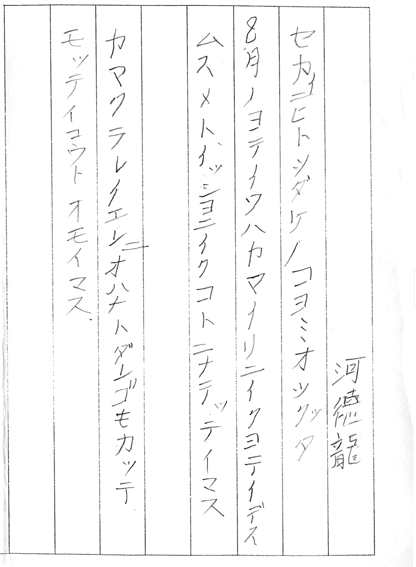 河徳龍
セカイニヒトツダケノコヨミオツクッタ
8月ノヨテイワハカマイリニイクヨテイデス
ムスメトイッショニイクコトニナテッテイマス
カマクラレイエンニオハナトダンゴモカッテ
モッテイコウト オモイマス.